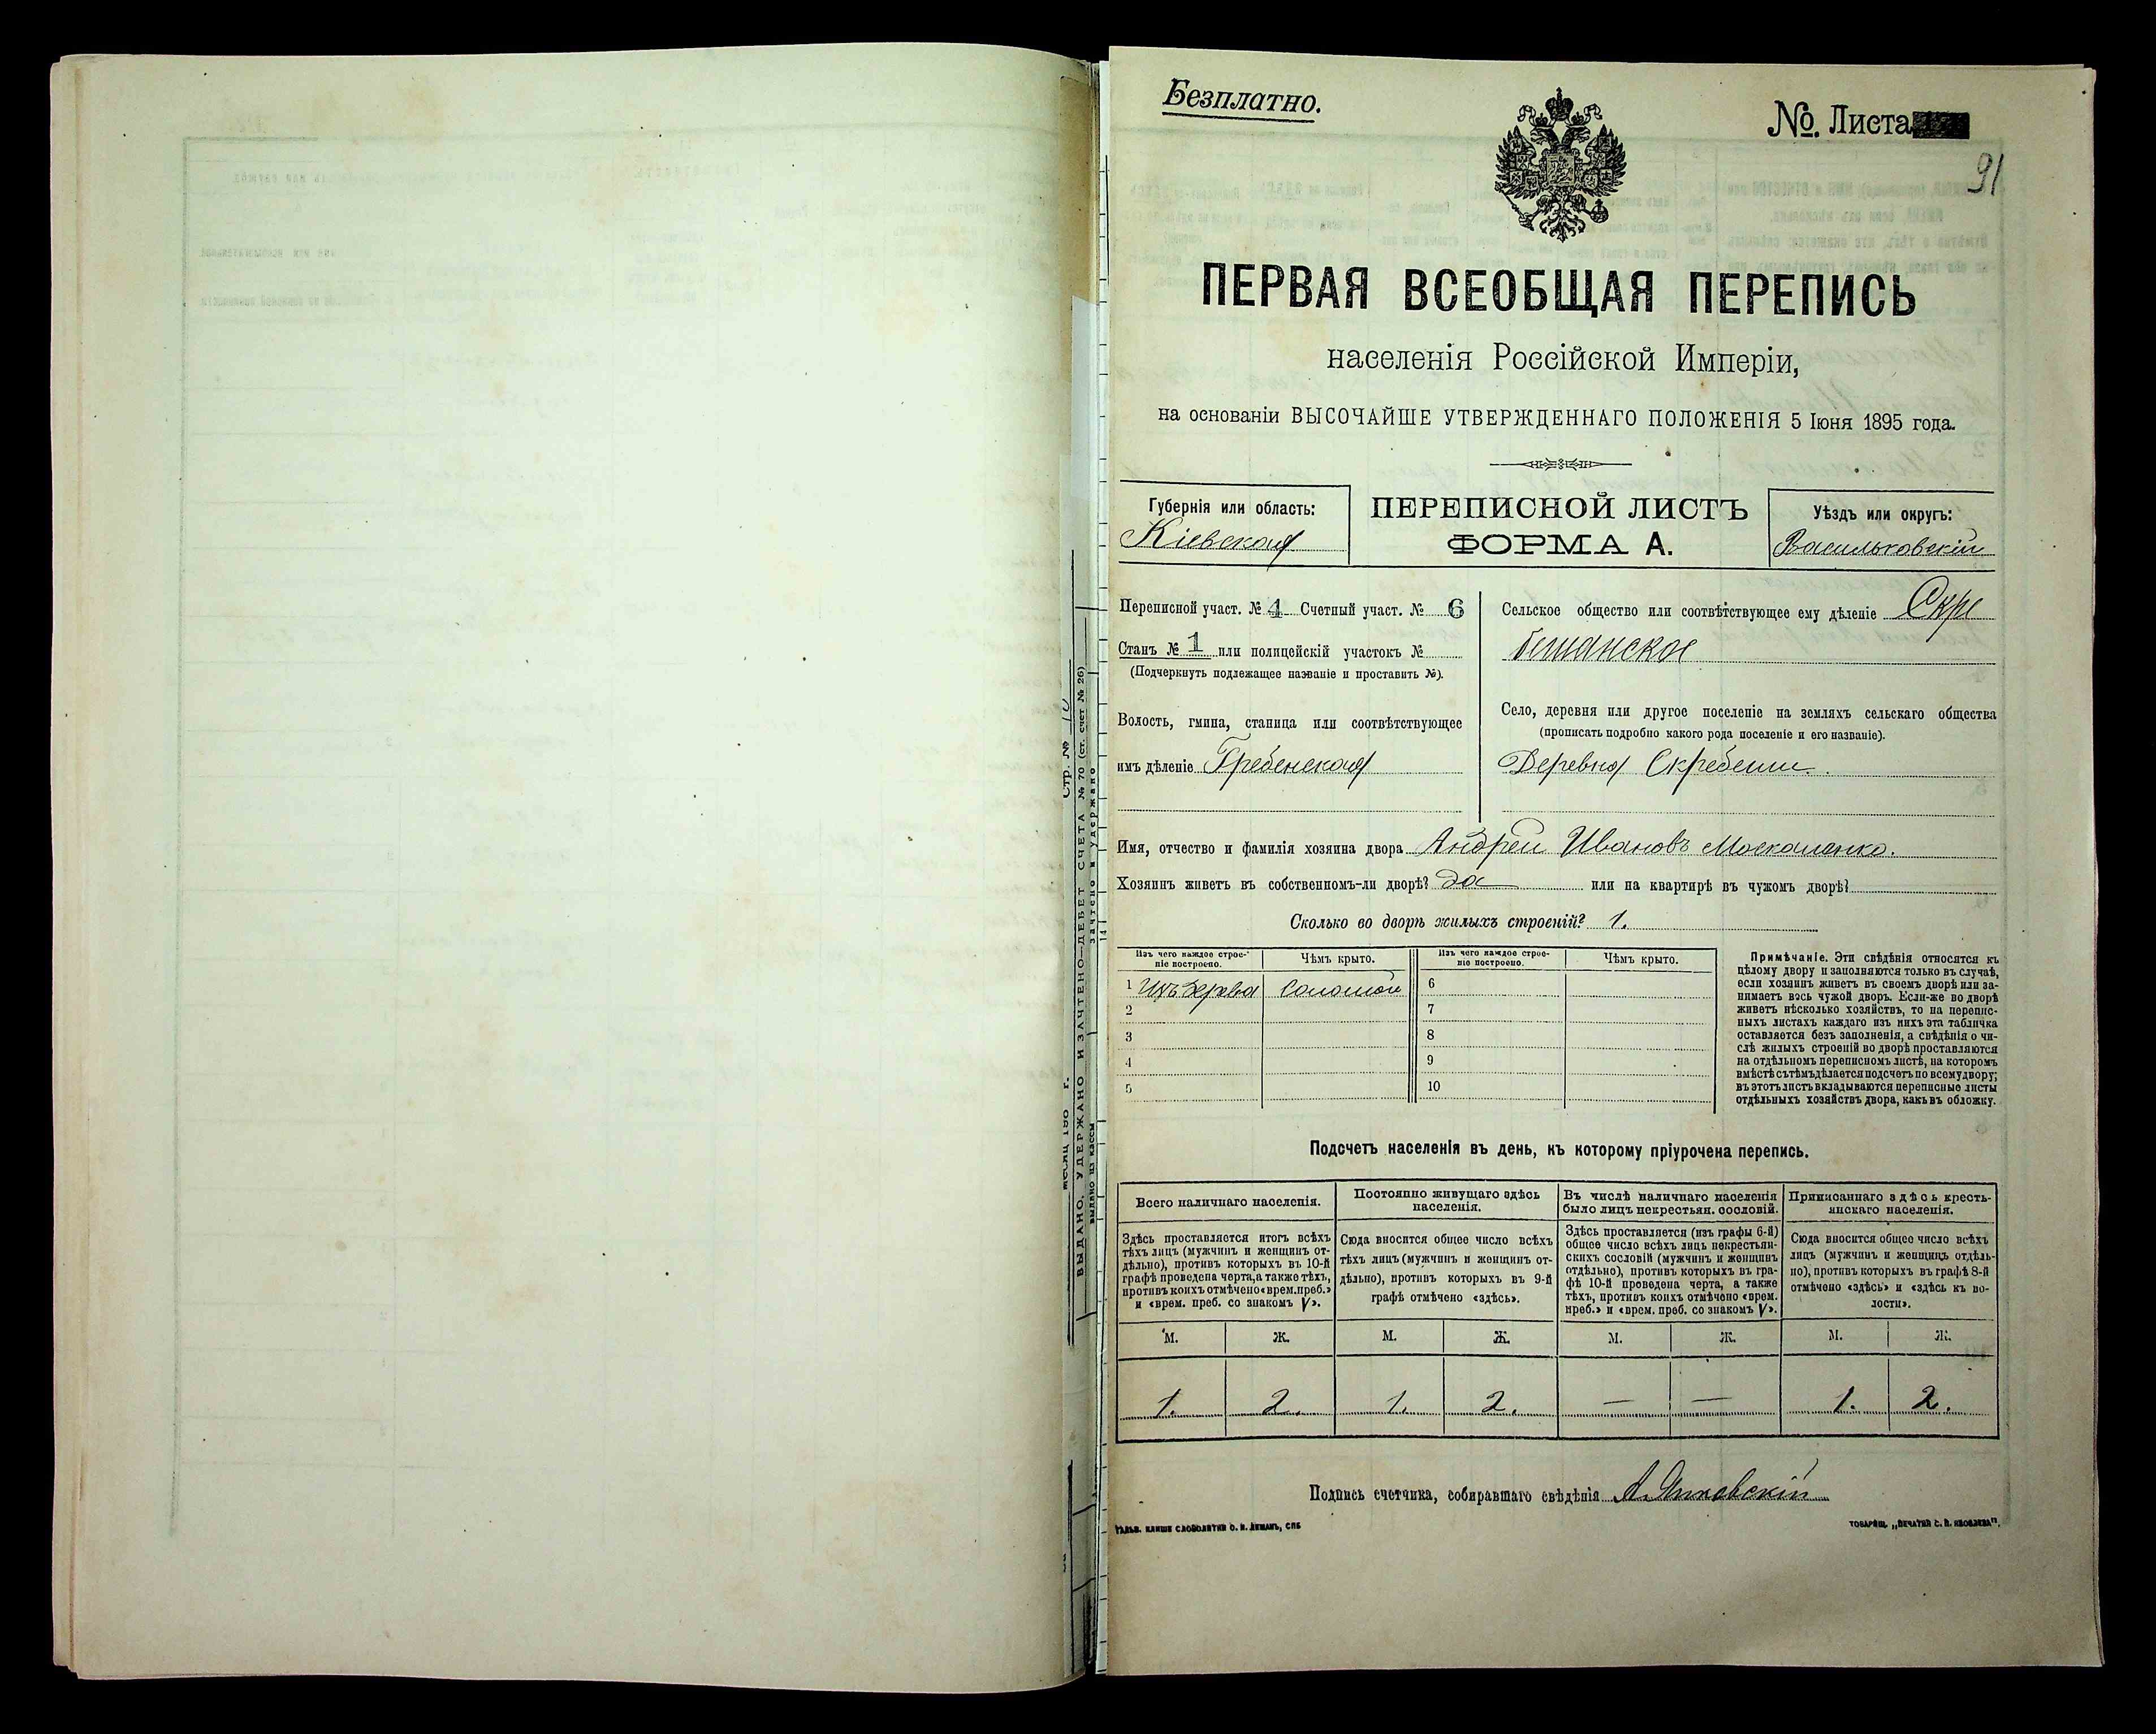 Безплатно.
№. Листа
91
ПЕРВАЯ ВСЕОБЩАЯ ПЕРЕПИСЬ
населенія Россійской Имперіи,
на основаніи ВЫСОЧАЙШЕ УТВЕРЖДЕННАГО ПОЛОЖЕНІЯ 5 Іюня 1895 года.
Губернія или область:
Кіевская
ПЕРЕПИСНОЙ ЛИСТЪ
ФОРМА А.
Уѣздъ или округъ:
Васильковскій
Переписной участ. № 4 Счетный участ. № 6
Станъ № 1 или полицейскій участокъ №
(Подчеркнуть подлежащее названіе и проставить №).
Волость, гмина, станица или соотвѣтствующее
имъ дѣленіе Гребенская
Сельское общество или соотвѣтствующее ему дѣленіе Скре
бешанское
Село, деревня или другое поселеніе на земляхъ сельскаго общества
(прописать подробно какого рода поселеніе и его названіе).
Деревня Скребеши.
Имя, отчество и фамилія хозяина двора Андрей Ивановъ Москаленко.
Хозяинъ живетъ въ собственномъ-ли дворѣ? да или на квартирѣ въ чужомъ дворѣ?
Сколько во дворѣ жилыхъ строеній? 1.
Изъ чего каждое строе-
ніе построено.
Чѣмъ крыто.
Изъ чего каждое строе-
ніе построено.
Чѣмъ крыто.
1 Изъ дерева Соломой 6
2 7
3 8
4 9
5 10
Примѣчаніе. Эти свѣдѣнія относятся къ
цѣлому двору и заполняются только въ случаѣ,
если хозяинъ живетъ въ своемъ дворѣ или за-
нимаетъ весь чужой дворъ. Если-же во дворѣ
живетъ нѣсколько хозяйствъ, то на перепис-
ныхъ листахъ каждаго изъ нихъ эта табличка
оставляется безъ заполненія, а свѣдѣнія о чи-
слѣ жилыхъ строеній во дворѣ проставляются
на отдѣльномъ переписномъ листѣ, на которомъ
вмѣстѣ съ тѣмъ дѣлается подсчетъ по всему двору;
въ этотъ листъ вкладываются переписные листы
отдѣльныхъ хозяйствъ двора, какъ въ обложку.
Подсчетъ населенія въ день, къ которому пріурочена перепись.
Всего наличнаго населенія.
Постоянно живущаго здѣсь
населенія.
Въ числѣ наличнаго населенія
было лицъ некрестьян. сословій.
Приписаннаго здѣсь кресть-
янскаго населенія.
Здѣсь проставляется итогъ всѣхъ
тѣхъ лицъ (мужчинъ и женщинъ от-
дѣльно), противъ которыхъ въ 10-й
графѣ проведена черта, а также тѣхъ,
противъ коихъ отмѣчено «врем. преб.»
и «врем. преб. со знакомъ V».
Сюда вносится общее число всѣхъ
тѣхъ лицъ (мужчинъ и женщинъ от-
дѣльно), противъ которыхъ въ 9-й
графѣ отмѣчено «здѣсь».
Здѣсь проставляется (изъ графы 6-й)
общее число всѣхъ лицъ некрестьян-
скихъ сословій (мужчинъ и женщинъ
отдѣльно), противъ которыхъ въ гра-
фѣ 10-й проведена черта, а также
тѣхъ, противъ коихъ отмѣчено «врем.
преб.» и «врем. преб. со знакомъ V».
Сюда вносится общее число всѣхъ
лицъ (мужчинъ и женщинъ отдѣль-
но), противъ которыхъ въ графѣ 8-й
отмѣчено «здѣсь» и «здѣсь къ во-
лости».
М. Ж. М. Ж. М. Ж. М. Ж.
1. 2. 1. 2. — — 1. 2.
Подпись счетчика, собиравшаго свѣдѣнія
ГАЛЬВ. КЛИШЕ СЛОВОЛИТНИ О. И. ЛЕМАНЪ, СПБ
ТОВАРИЩ. „ПЕЧАТНЯ С. П. ЯКОВЛЕВА".
Стр. №
ВЫДАНО, УДЕРЖАНО И ЗАЧТЕНО—ДЕБЕТ СЧЕТА № 70 (ст. счет № 26)
выдано из кассы
зачтено и удержано
14